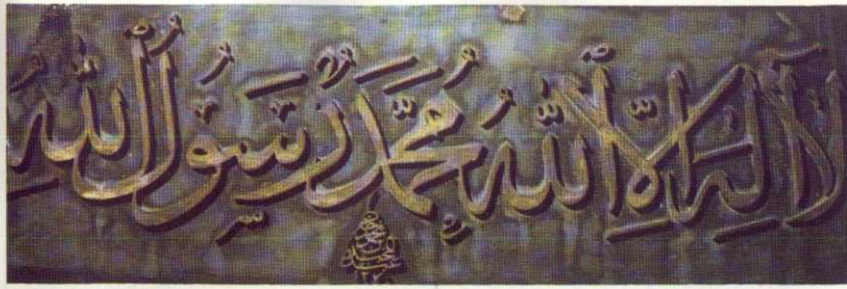 لَا إِلَٰهَ إِلَّا ٱللَّهُ مُحَمَّدٌ رَسُولُ ٱللَّهِ